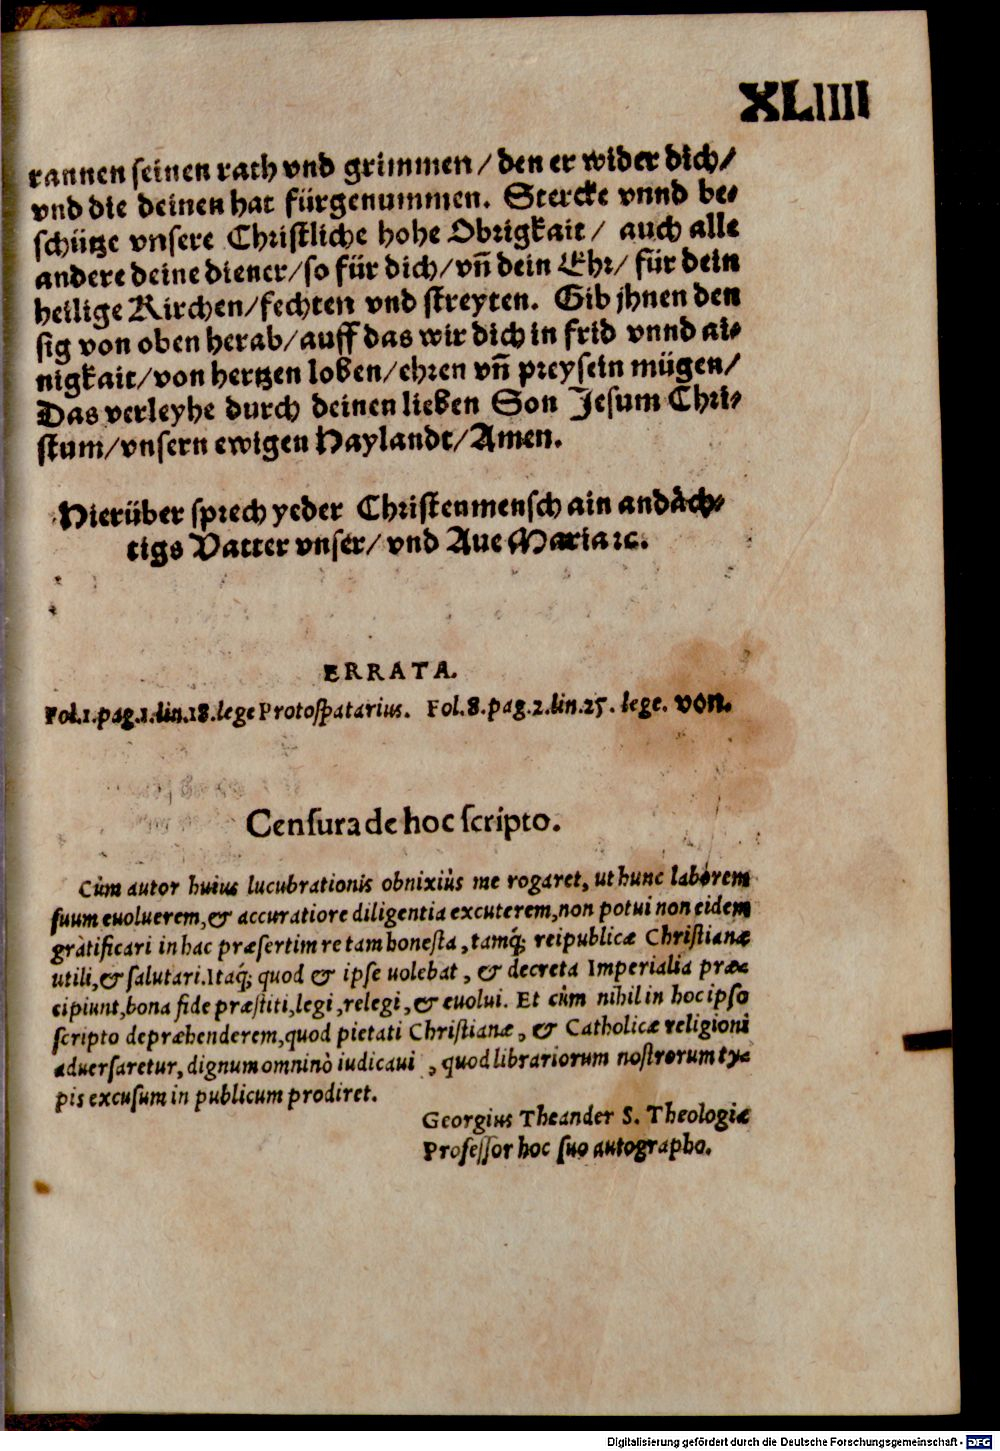 XLIIII
rannen seinen rath vnd grimmen / den er wider dich/
vnd die deinen hat fürgenummen. Stercke vnnd be⸗
schütze vnsere Christliche hohe Obrigkait / auch alle
andere deine diener/so für dich/vñ dein Ehr/ für dein
heilige Kirchen/fechten vnd streyten. Gib jhnen den
sig von oben herab/auff das wir dich in frid vnnd ai⸗
nigkait/von hertzen loben/ehren vñ preysein mügen/
Das verleyhe durch deinen lieben Son Jesum Chri⸗
stum/vnsern ewigen Haylandt/Amen.
Hierüber sprech yeder Christenmensch ain andäch⸗
tigs Vatter vnser/ vnd Aue Maria ꝛc.
ERRATA.
Fol.1.pag.1.lin.18.lege Protospatarius. Fol.8.pag.2.lin.25. lege. von.
Censura de hoc scripto.
Cùm autor huius lucubrationis obnixiùs me rogaret, ut hunc laborem
suum euoluerem,& accuratiore diligentia excuterem,non potui non eidem
gratificari in hac præsertim re tam honesta, tamq́; reipublicæ Christianæ
utili,& salutari.Itaq́; quod & ipse uolebat, & decreta Imperialia præ⸗
cipiunt,bona fide præstiti,legi,relegi,& euolui. Et cùm nihil in hoc ipso
scripto depræhenderem,quod pietati Christianæ, & Catholicæ religioni
aduersaretur, dignum omninò iudicaui, quod librariorum nostrorum ty⸗
pis excusum in publicum prodiret.
Georgius Theander S. Theologiæ
Professor hoc suo autographo.
Digitalisierung gefördert durch die Deutsche Forschungsgemeinschaft - DFG